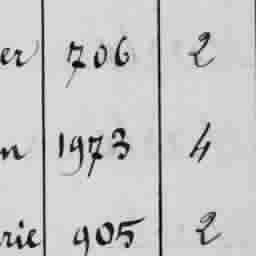 er 706 2
n 1973 4
rie 905 2